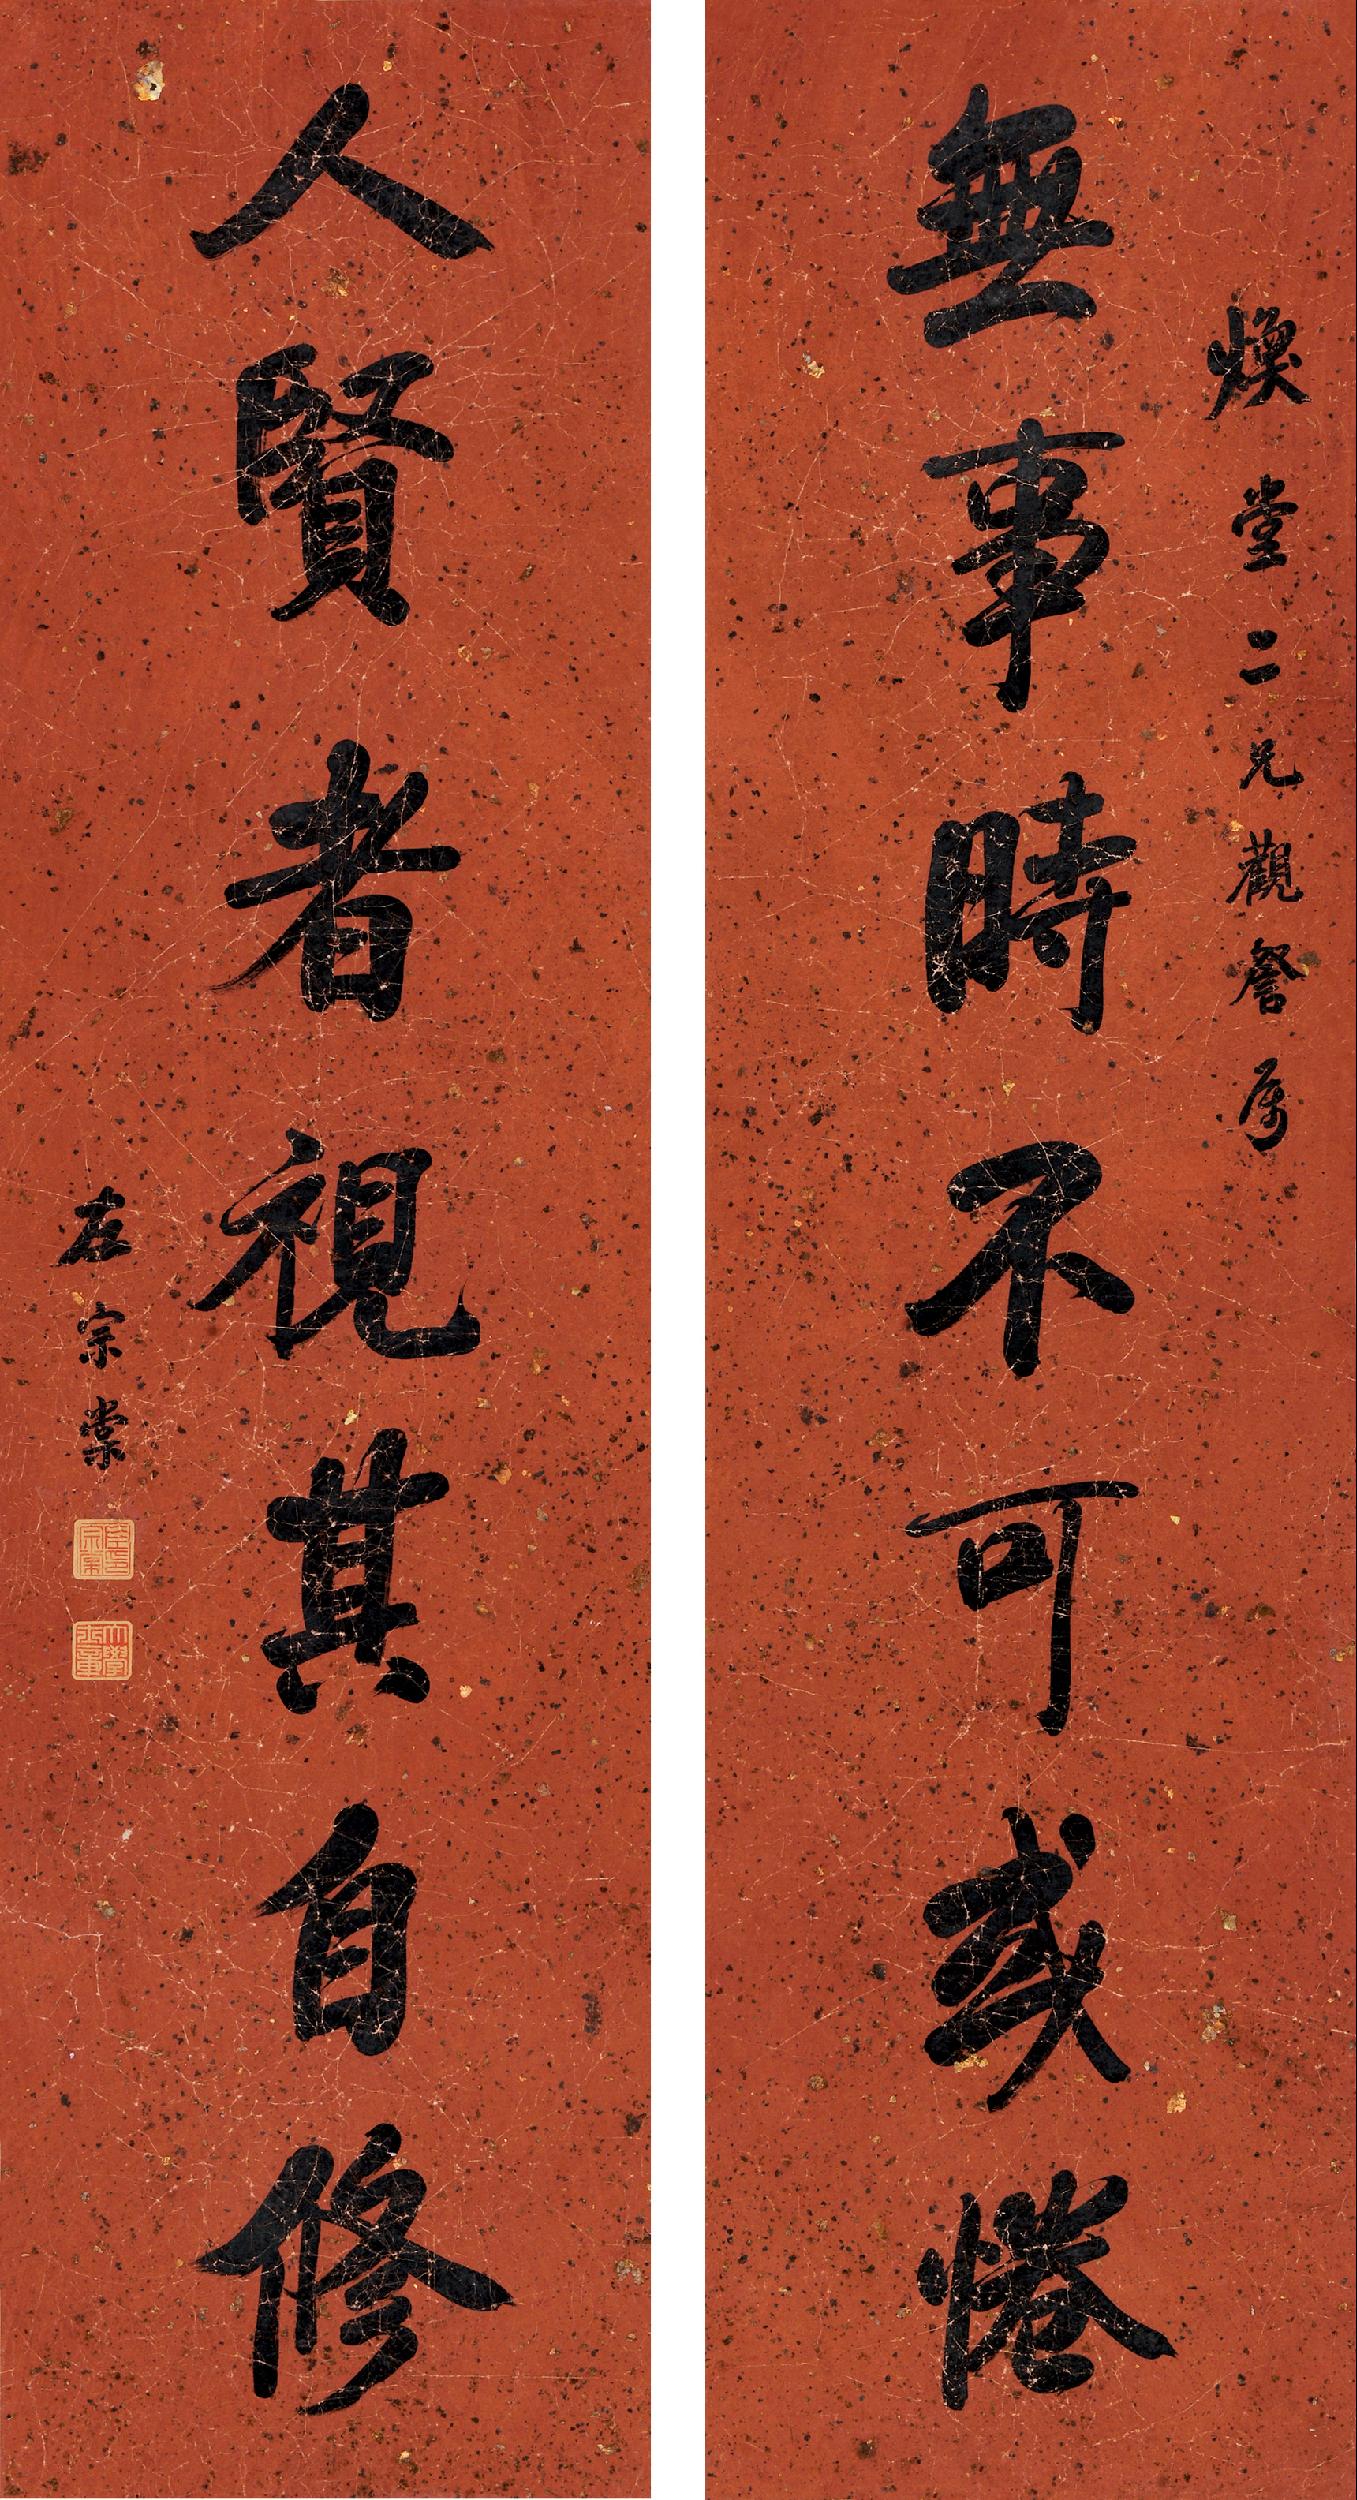 煥堂二兄觀詧屬
無事時不可或惓
人賢者視其自修
左宗棠